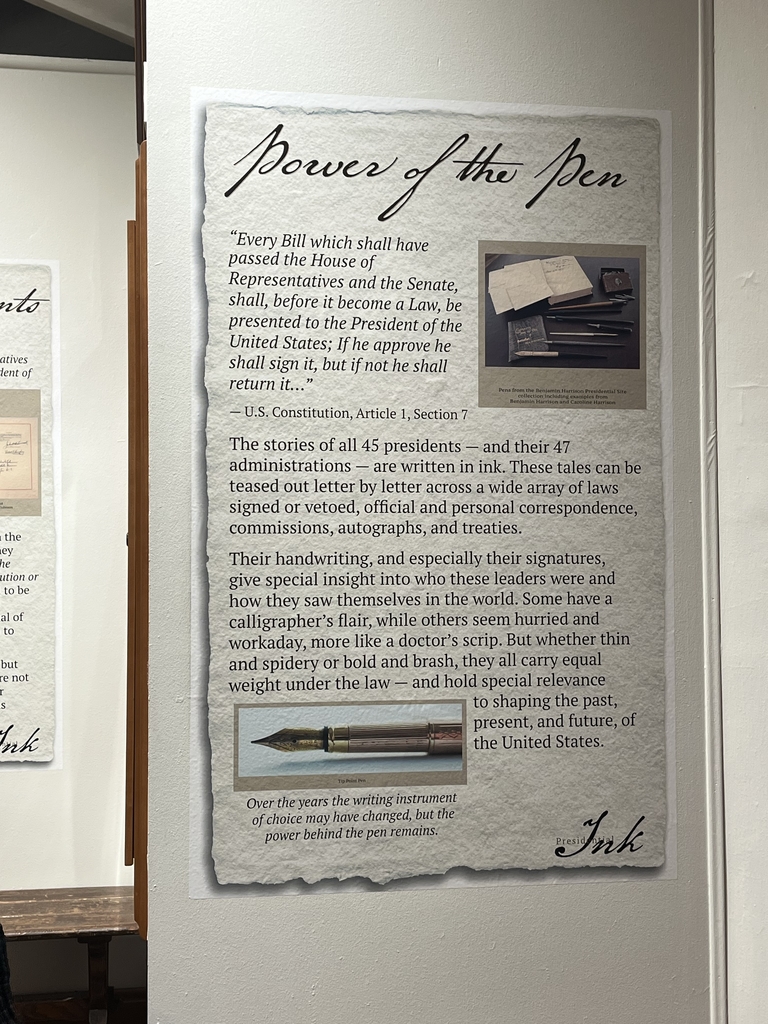 Power of the Pen
“Every Bill which shall have
passed the House of
Representatives and the Senate,
shall, before it become a Law, be
presented to the President of the
United States; If he approve he
shall sign it, but if not he shall
return it...”
— U.S. Constitution, Article 1, Section 7
Pens from the Benjamin Harrison Presidential Site
collection including examples from
Benjamin Harrison and Caroline Harrison
The stories of all 45 presidents — and their 47
administrations — are written in ink. These tales can be
teased out letter by letter across a wide array of laws
signed or vetoed, official and personal correspondence,
commissions, autographs, and treaties.
Their handwriting, and especially their signatures,
give special insight into who these leaders were and
how they saw themselves in the world. Some have a
calligrapher’s flair, while others seem hurried and
workaday, more like a doctor’s scrip. But whether thin
and spidery or bold and brash, they all carry equal
weight under the law — and hold special relevance
to shaping the past,
present, and future, of
the United States.
Over the years the writing instrument
of choice may have changed, but the
power behind the pen remains.
Presidential
Ink
nts
atives
dent of
the
ey
he
ution or
to be
al of
to
but
re not
r
s
Ink